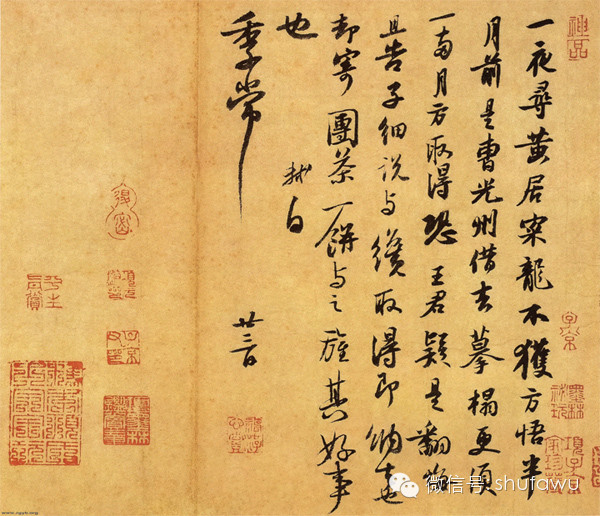 一夜尋黃居寀龍不獲方悟半
月前是曹光州借去摹搨更須
一兩月方取得恐王君疑是翻悔
且告子細說與纔取得即納去也
却寄團茶一餅與之旌其好事
也
軾白
季常
廿三日
神品
子京
微信号: shufawu